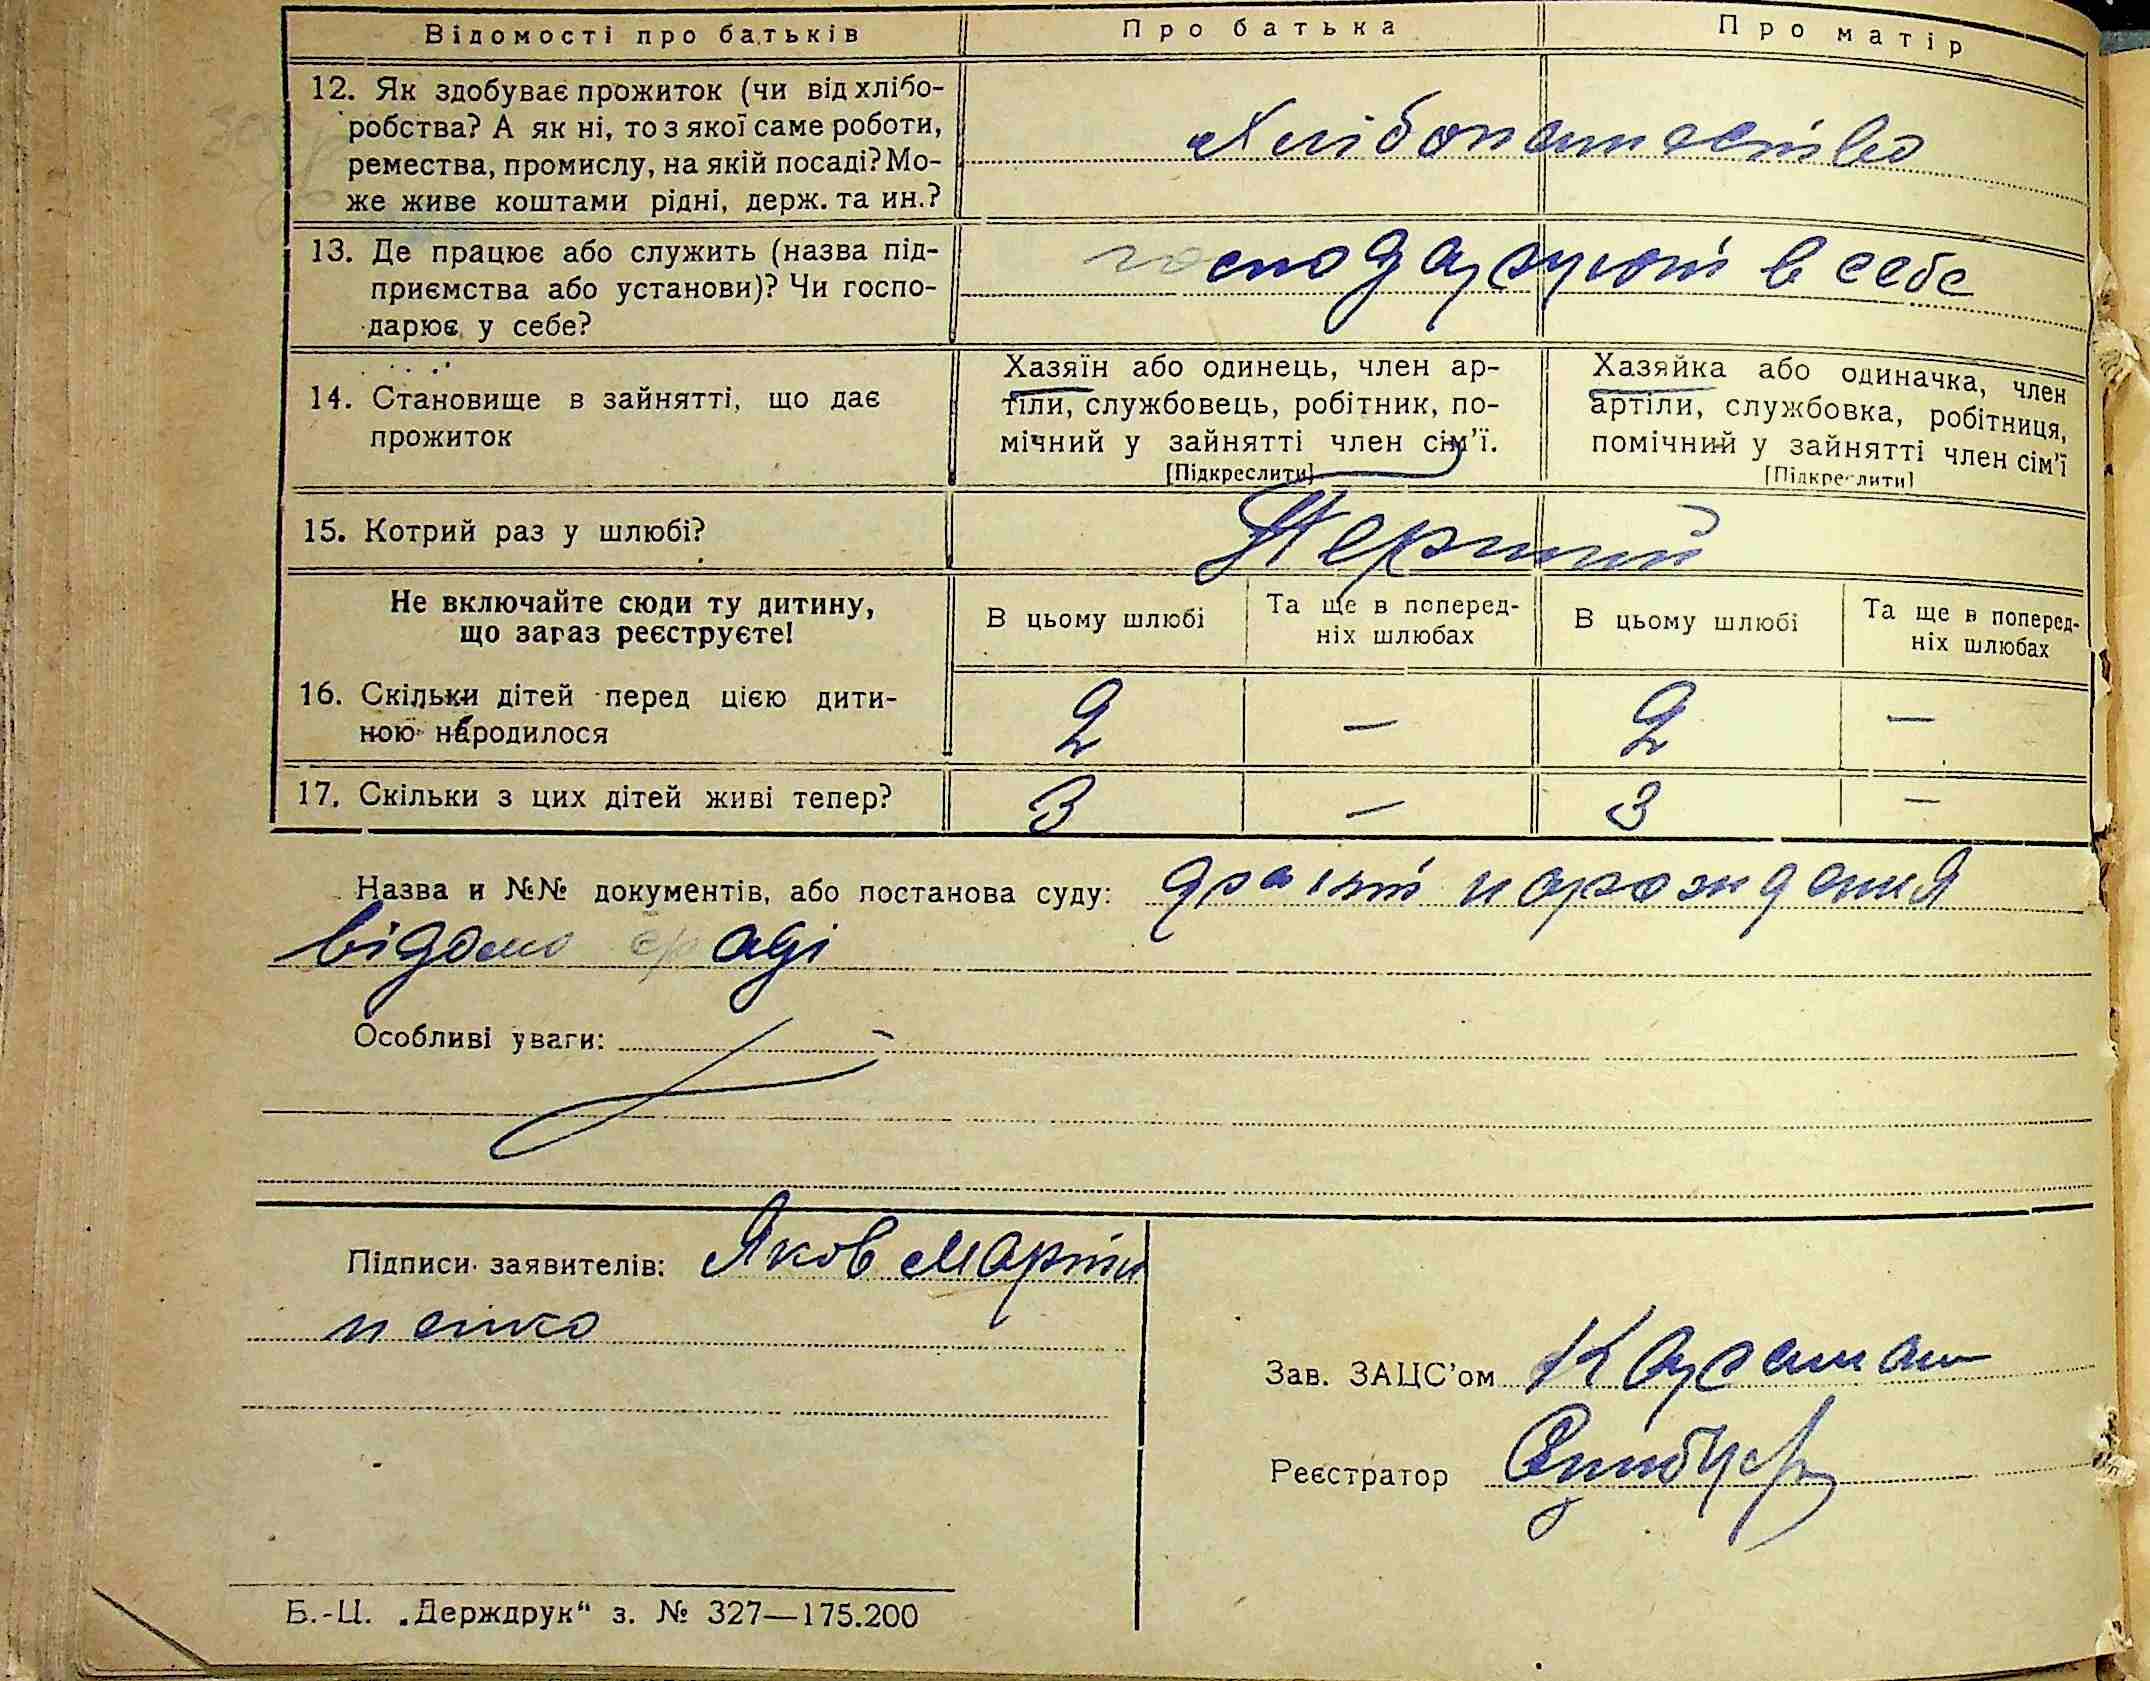 Відомості про батьків
Про батька
Про матір
12. Як здобуває прожиток (чи від хлібо-
робства? А як ні, то з якої саме роботи,
ремества, промислу, на якій посаді? Мо-
же живе коштами рідні, держ. та ин.?
Хлібопашество
13. Де працює або служить (назва під-
приємства або установи)? Чи госпо-
дарює у себе?
господарують в себе
14. Становище в зайнятті, що дає
прожиток
Хазяїн або одинець, член ар-
тіли, службовець, робітник, по-
мічний у зайнятті член сім'ї.
[Підкреслити]
Хазяйка або одиначка, член
артіли, службовка, робітниця,
помічний у зайнятті член сім'ї
[Підкреслити]
15. Котрий раз у шлюбі?
Первий
Не включайте сюди ту дитину,
що зараз реєструєте!
В цьому шлюбі
Та ще в поперед-
ніх шлюбах
В цьому шлюбі
Та ще в поперед-
ніх шлюбах
16. Скільки дітей перед цією дити-
ною народилося
2 — 2 —
17. Скільки з цих дітей живі тепер?
3 — 3 —
Назва и №№ документів, або постанова суду: нарождения
відомо раді
Особливі уваги:
Підписи заявителів: Яков Марти
ненко
Зав. ЗАЦС'ом
Реєстратор
Б.-Ц. „Держдрук“ з. № 327—175.200